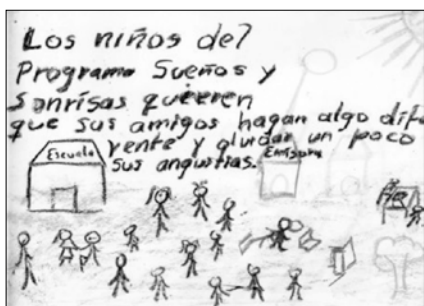 Los niños del
Programa Sueños y
Sonrisas quieren
que sus amigos hagan algo dife
rente y olvidar un poco
sus angustias.
Escuela
Emisora